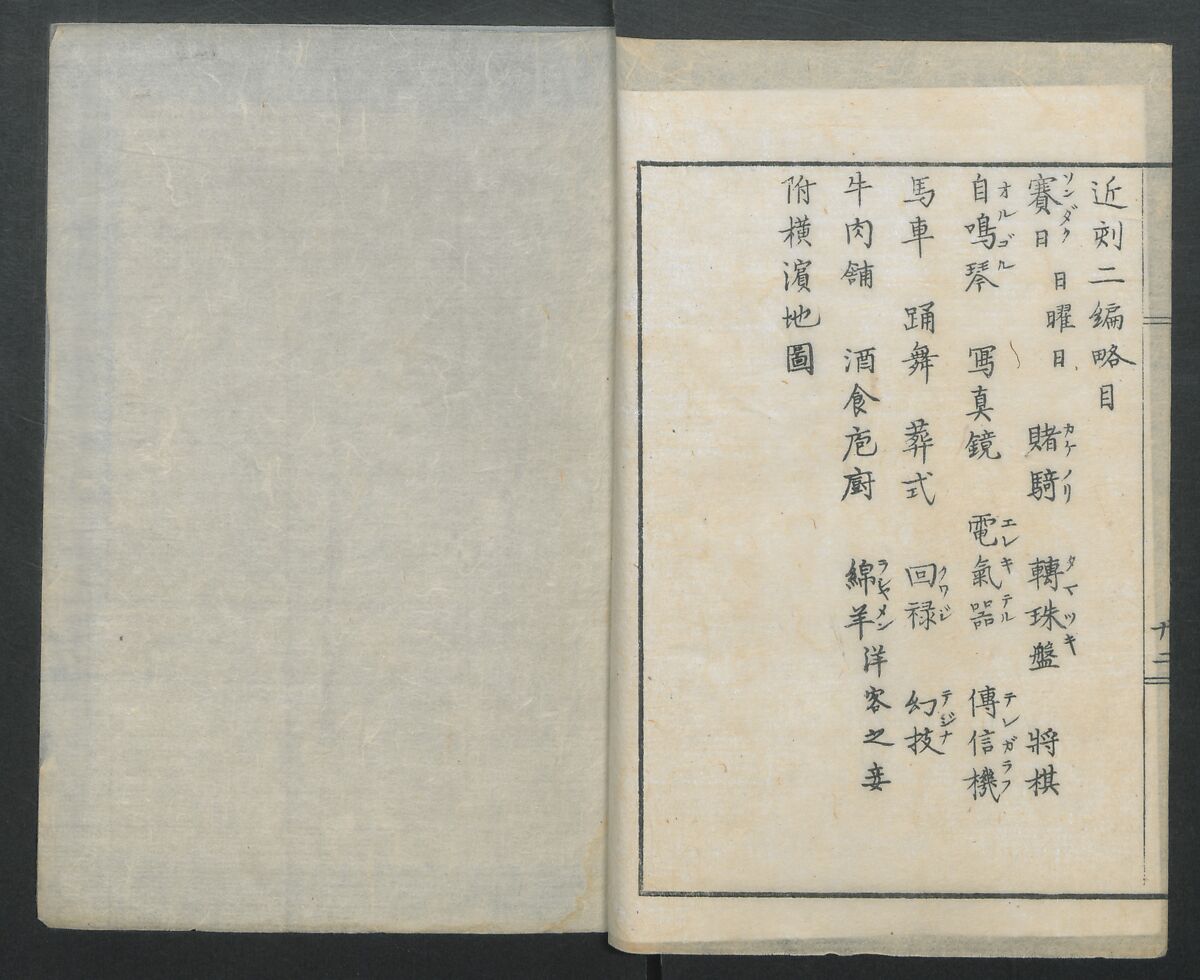 近刻二編略目
賽日 日曜日 賭騎 轉珠盤 將棋
ソンダク カケノリ タマツキ
自鳴琴 寫真鏡 電氣器 傳信機
オルゴル エレキテル テレガラフ
馬車 踊舞 葬式 回禄 幻技
クワジ テジナ
牛肉舖 酒食庖廚 綿羊 洋客之妾
ラシヤメン
附橫濱地圖
十二